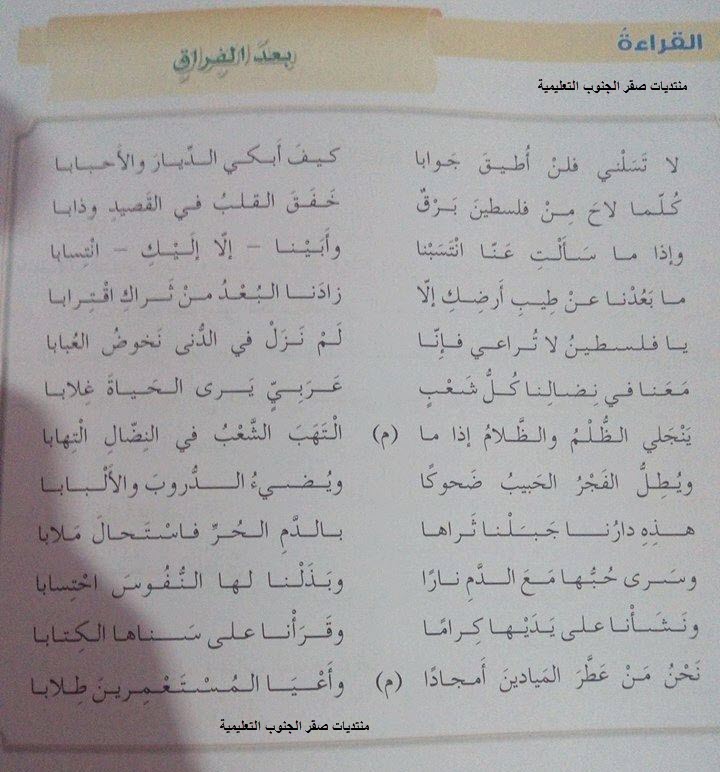 القراءةُ
بعدَ الفِراقِ
منتديات صقر الجنوب التعليمية
لا تَسَلْني فلنْ أُطيقَ جَوابا كيفَ أَبكي الـدِّيـارَ والأَحبـابـا
كُـلَّمـا لاحَ مِـنْ فلسطينَ بَـرْقٌ خَفَـقَ القلبُ في القَصيدِ وذابا
وإذا ما سَـأَلْـتِ عَنَّـا انْتَسَبْنا وأَبَيْـنـا – إلّا إلَيْـكِ – انْتِسابا
ما بَعُدْنـا عـنْ طِيبِ أَرضِـكِ إلّا زادَنـا البُعْـدُ مـنْ ثَـراكِ اقْتِـرابا
يـا فلـسطيـنُ لا تُـراعي فـإنّـا لَـمْ نَـزَلْ في الدُّنى نَخوضُ العُبابا
مَعَنا في نِضالِنا كُـلُّ شَعْـبٍ عَـرَبيٍّ يَـرى الـحَيـاةَ غِلابا
يَنْجَلي الظُّلْمُ والظَّلامُ إذا ما (م) الْتَهَبَ الشَّعْبُ في النِضّالِ الْتِهابا
ويُطِلُّ الفَجْرُ الحَبيبُ ضَحوكًا ويُـضـيءُ الـدُّروبَ والأَلْـبـابـا
هـذِهِ دارُنـا جَبَـلْنا ثَـراهـا بـالـدَّمِ الـحُرِّ فـاسْتَحـالَ مَـلابا
وسَـرى حُبُّهـا مَـعَ الـدَّمِ نـارًا وبَـذَلْنـا لهـا النُّفُوسَ احْتِسابا
ونَـشَـأْنـا على يَدَيْـهـا كِـرامًـا وقَـرَأْنـا على سَـنـاها الكِتـابـا
نَحْنُ مَـنْ عَطَّرَ المَيادينَ أَمجـادًا (م) وأَعْيَـا المُسْتَعْمِـرينَ طِلابا
منتديات صقر الجنوب التعليمية